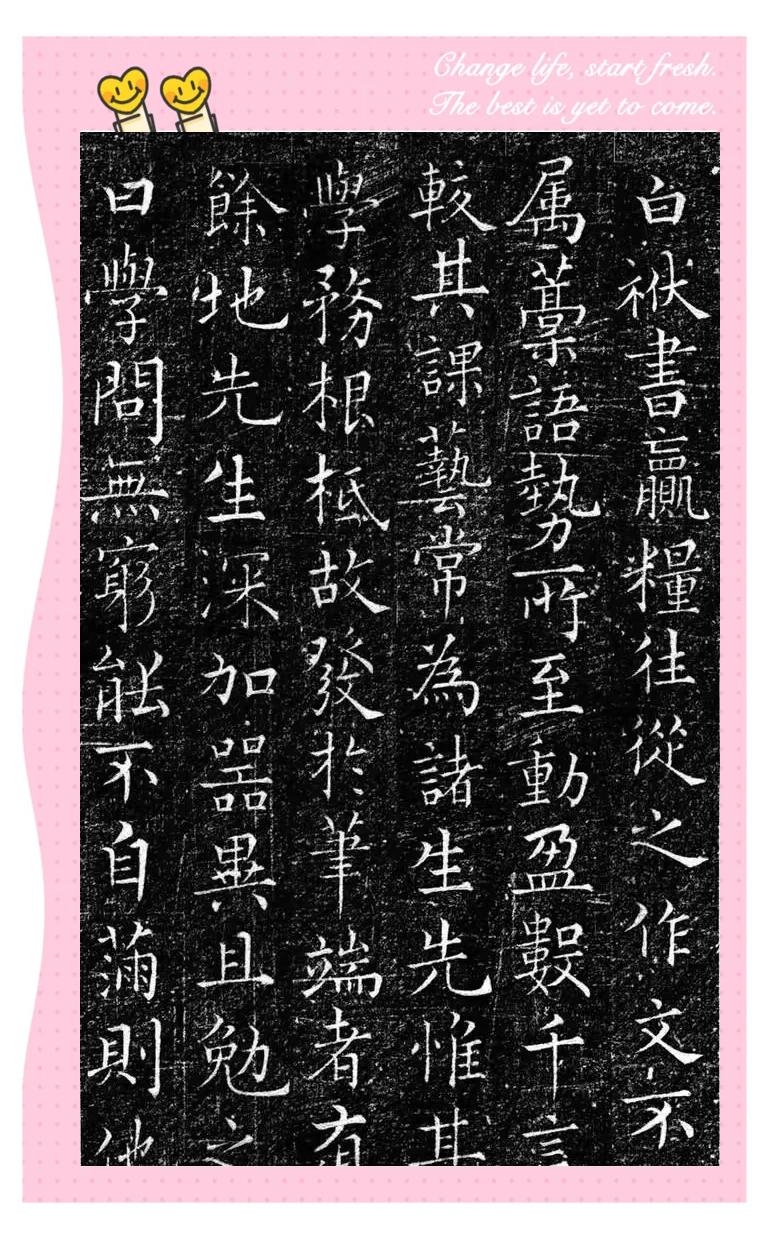 Change life, start fresh.
The best is yet to come.
白袱書贏糧往從之作文不
属藁語勢所至動盈數千言
較其課藝常為諸生先惟其
學務根柢故發於筆端者有
餘地先生深加器異且勉之
曰學問無窮能不自滿則他